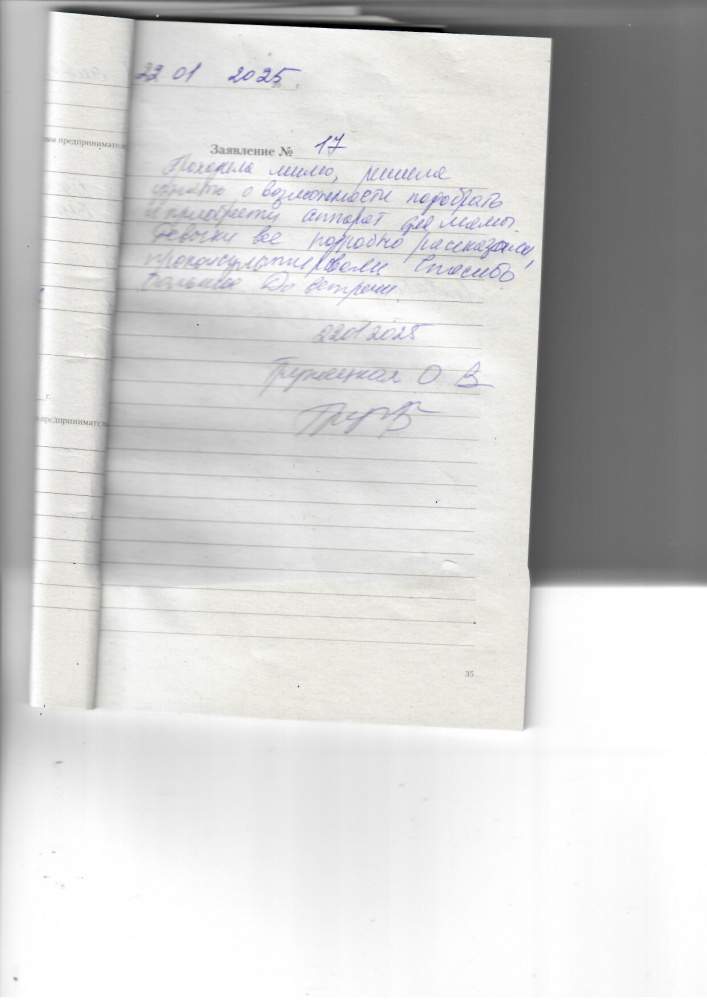 22 01 2025
Заявление № 17
Проходила мимо, решила
узнать о возможности подобрать
и приобрести аппарат для мамы.
Девочки все подробно рассказали,
проконсультировали Спасибо
большое До встречи.
22012025
О В
г.
предпринимател
35